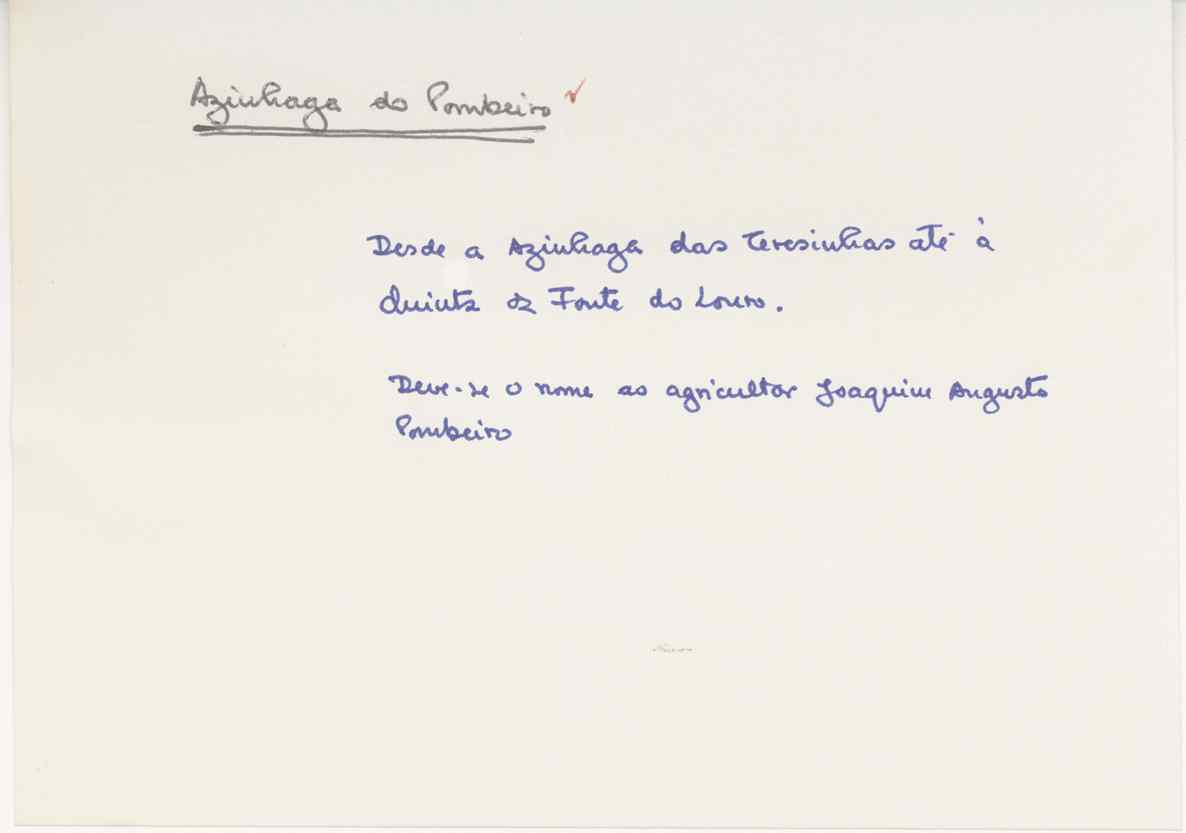 Azinhaga do Pombeiro
Desde a Azinhaga das Teresinhas até à
Quinta da Fonte do Louro.
Deve-se o nome ao agricultor Joaquim Augusto
Pombeiro